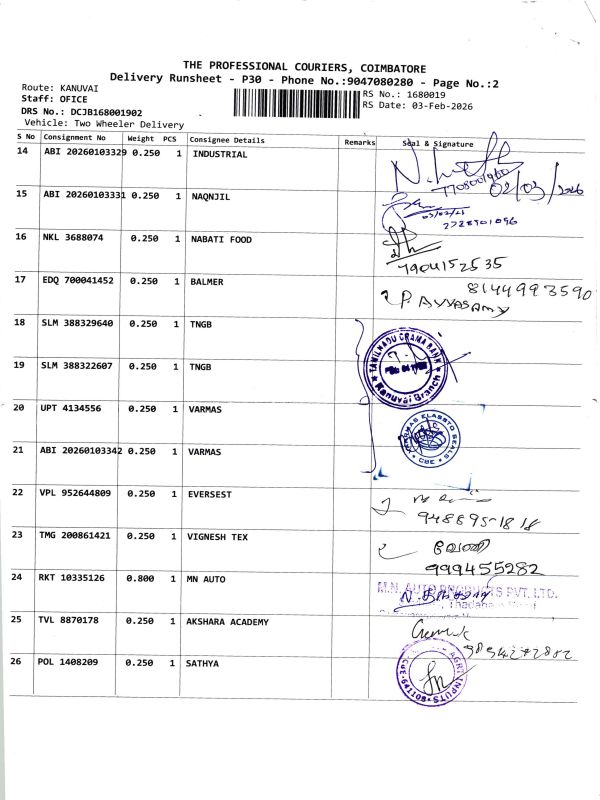 THE PROFESSIONAL COURIERS, COIMBATORE
Delivery Runsheet - P30 - Phone No.:9047080280 - Page No.:2
Route: KANUVAI
Staff: OFICE
DRS No.: DCJB168001902
Vehicle: Two Wheeler Delivery
RS No.: 1680019
RS Date: 03-Feb-2026
S No Consignment No Weight PCS Consignee Details Remarks Seal & Signature
14 ABI 20260103329 0.250 1 INDUSTRIAL
15 ABI 20260103331 0.250 1 NAQNJIL
16 NKL 3688074 0.250 1 NABATI FOOD
7904152535
17 EDQ 700041452 0.250 1 BALMER 8144993590
P. AYYASAMY
18 SLM 388329640 0.250 1 TNGB
TAMILNADU GRAMA BANK
Kanuvai Branch
19 SLM 388322607 0.250 1 TNGB
20 UPT 4134556 0.250 1 VARMAS
VARMAS ELASSTO SEALS
CBE
21 ABI 20260103342 0.250 1 VARMAS
22 VPL 952644809 0.250 1 EVERSEST
23 TMG 200861421 0.250 1 VIGNESH TEX
999455282
24 RKT 10335126 0.800 1 MN AUTO
M.N. AUTO PRODUCTS PVT. LTD.
25 TVL 8870178 0.250 1 AKSHARA ACADEMY
26 POL 1408209 0.250 1 SATHYA
AGRI INPUTS
CBE-641108